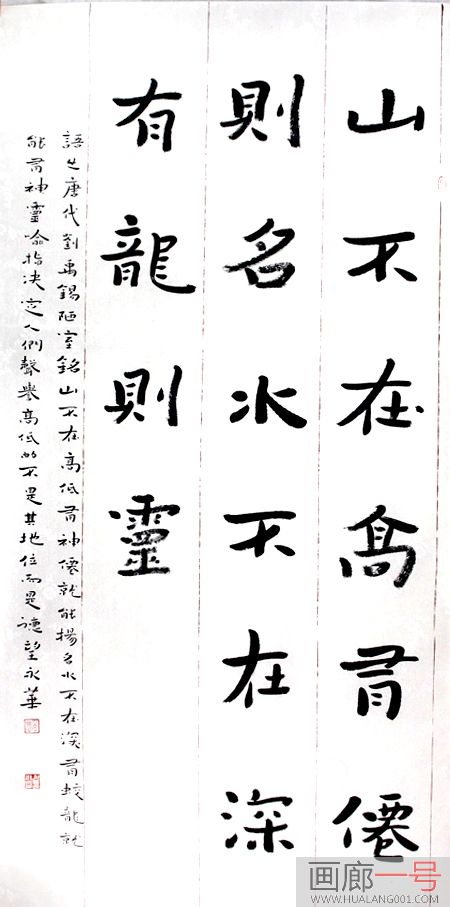 山不在高有僊
則名水不在深
有龍則靈
語出唐代劉禹錫陋室銘山不在高低有神僊就能揚名水不在深有蛟龍就
能有神靈喻指决定人們聲譽高低的不是其地位而是德望永華
画廊一号
WWW.HUALANG001.COM